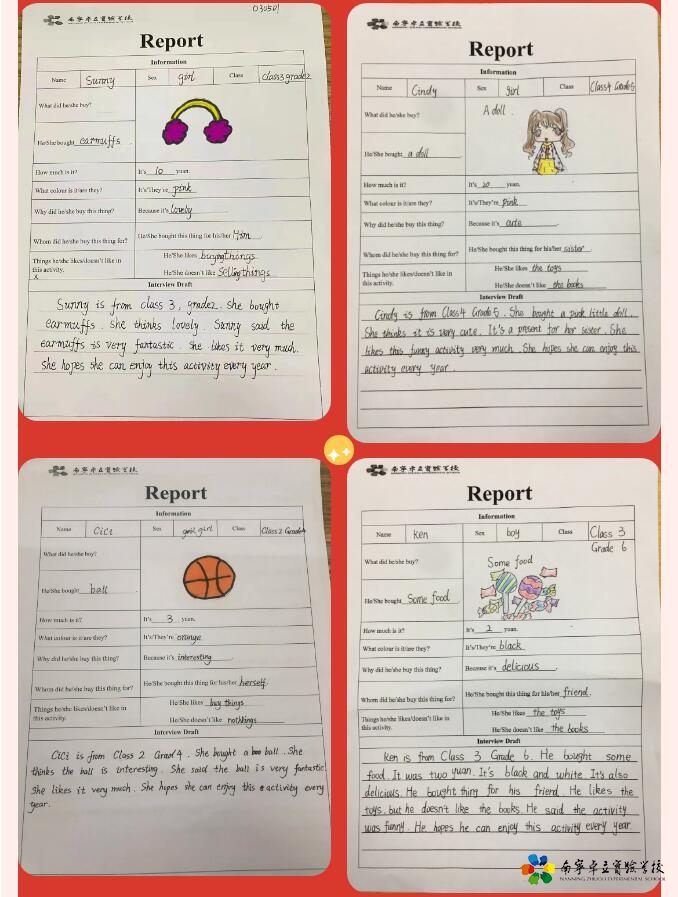 030501
南宁卓立实验学校
Report
Information
Name Sunny Sex girl Class Class3 grade2
What did he/she buy?
He/She bought earmuffs
How much is it? It's 10 yuan.
What colour is it/are they? It's/They're pink
Why did he/she buy this thing? Because it's lovely
Whom did he/she buy this thing for? He/She bought this thing for his/her
Things he/she likes/doesn't like in this activity. He/She likes buying things
He/She doesn't like Selling things
Interview Draft
Sunny is from class 3, grade2. She bought
earmuffs. She thinks lovely. Sunny said the
earmuffs is very fantastic. She likes it very much.
She hopes she can enjoy this activity every year.
南宁卓立实验学校
Report
Information
Name Cindy Sex girl Class Class4 Grade5
What did he/she buy? A doll.
He/She bought a doll
How much is it? It's 20 yuan.
What colour is it/are they? It's/They're pink
Why did he/she buy this thing? Because it's cute
Whom did he/she buy this thing for? He/She bought this thing for his/her sister.
Things he/she likes/doesn't like in this activity. He/She likes the toys
He/She doesn't like the books
Interview Draft
Cindy is from Class4 Grade5. She bought a pink little doll.
She thinks it is very cute. It's a present for her sister. She
likes this funny activity very much. She hopes she can enjoy this
activity every year.
南宁卓立实验学校
Report
Information
Name CiCi Sex girl Class Class2 Grade4
What did he/she buy?
He/She bought ball
How much is it? It's 3 yuan.
What colour is it/are they? It's/They're orange
Why did he/she buy this thing? Because it's interesting
Whom did he/she buy this thing for? He/She bought this thing for his/her herself.
Things he/she likes/doesn't like in this activity. He/She likes buy things
He/She doesn't like nothings
Interview Draft
CiCi is from Class 2 Grad4. She bought a ball. She
thinks the ball is interesting. She said the ball is very fantastic
She likes it very much. She hopes she can enjoy this activity every
year.
南宁卓立实验学校
Report
Information
Name Ken Sex boy Class Class 3
Grade 6
What did he/she buy? Some food
He/She bought Some food
How much is it? It's 2 yuan.
What colour is it/are they? It's/They're black
Why did he/she buy this thing? Because it's delicious
Whom did he/she buy this thing for? He/She bought this thing for his/her friend.
Things he/she likes/doesn't like in this activity. He/She likes the toys
He/She doesn't like the books
Interview Draft
Ken is from Class 3 Grade 6. He bought some
food. It was two yuan. It's black and white. It's also
delicious. He bought thing for his friend. He likes the
toys. but he doesn't like the books. He said the activity
was funny. He hopes he can enjoy this activity every year.
南宁卓立实验学校
NANNING ZHUOLI EXPERIMENTAL SCHOOL